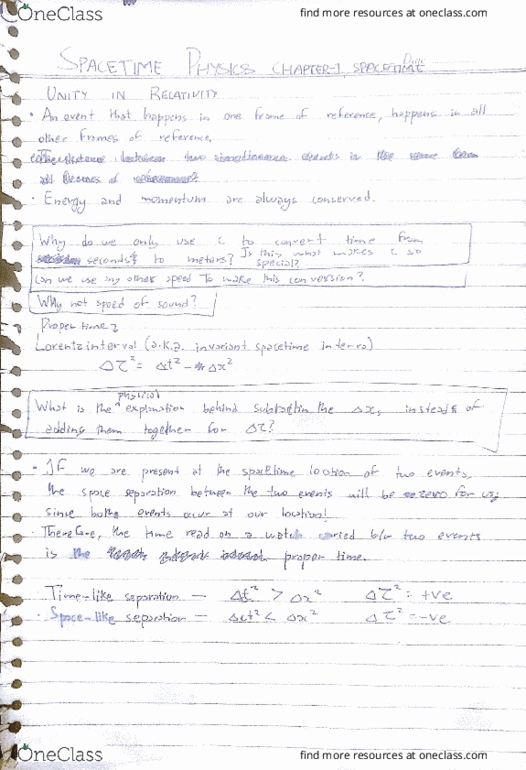 OneClass
find more resources at oneclass.com
SPACETIME PHYSICS CHAPTER-1, SPACETIME
UNITY IN RELATIVITY
• An event that happens in one frame of reference, happens in all
other frames of reference.
• Energy and momentum are always conserved.
Why do we only use c to convert time from
seconds to meters? Is this what makes c so
special?
Can we use any other speed to make this conversion?
Why not speed of sound?
Proper time
Lorentz interval (a.k.a. invariant spacetime interval)
Δτ² = Δt² - Δx²
physical
What is the ^ explanation behind the Δx, instead of
adding them together for Δτ?
• If we are present at the spacetime location of two events,
the space separation between the two events will be zero for us,
since both events occur at our location!
Therefore, the time read on a watch carried b/w two events
is the proper time.
Time-like separation — Δt² > Δx² Δτ² = +ve
• Space-like separation — Δt² < Δx² Δτ² = -ve
OneClass
find more resources at oneclass.com